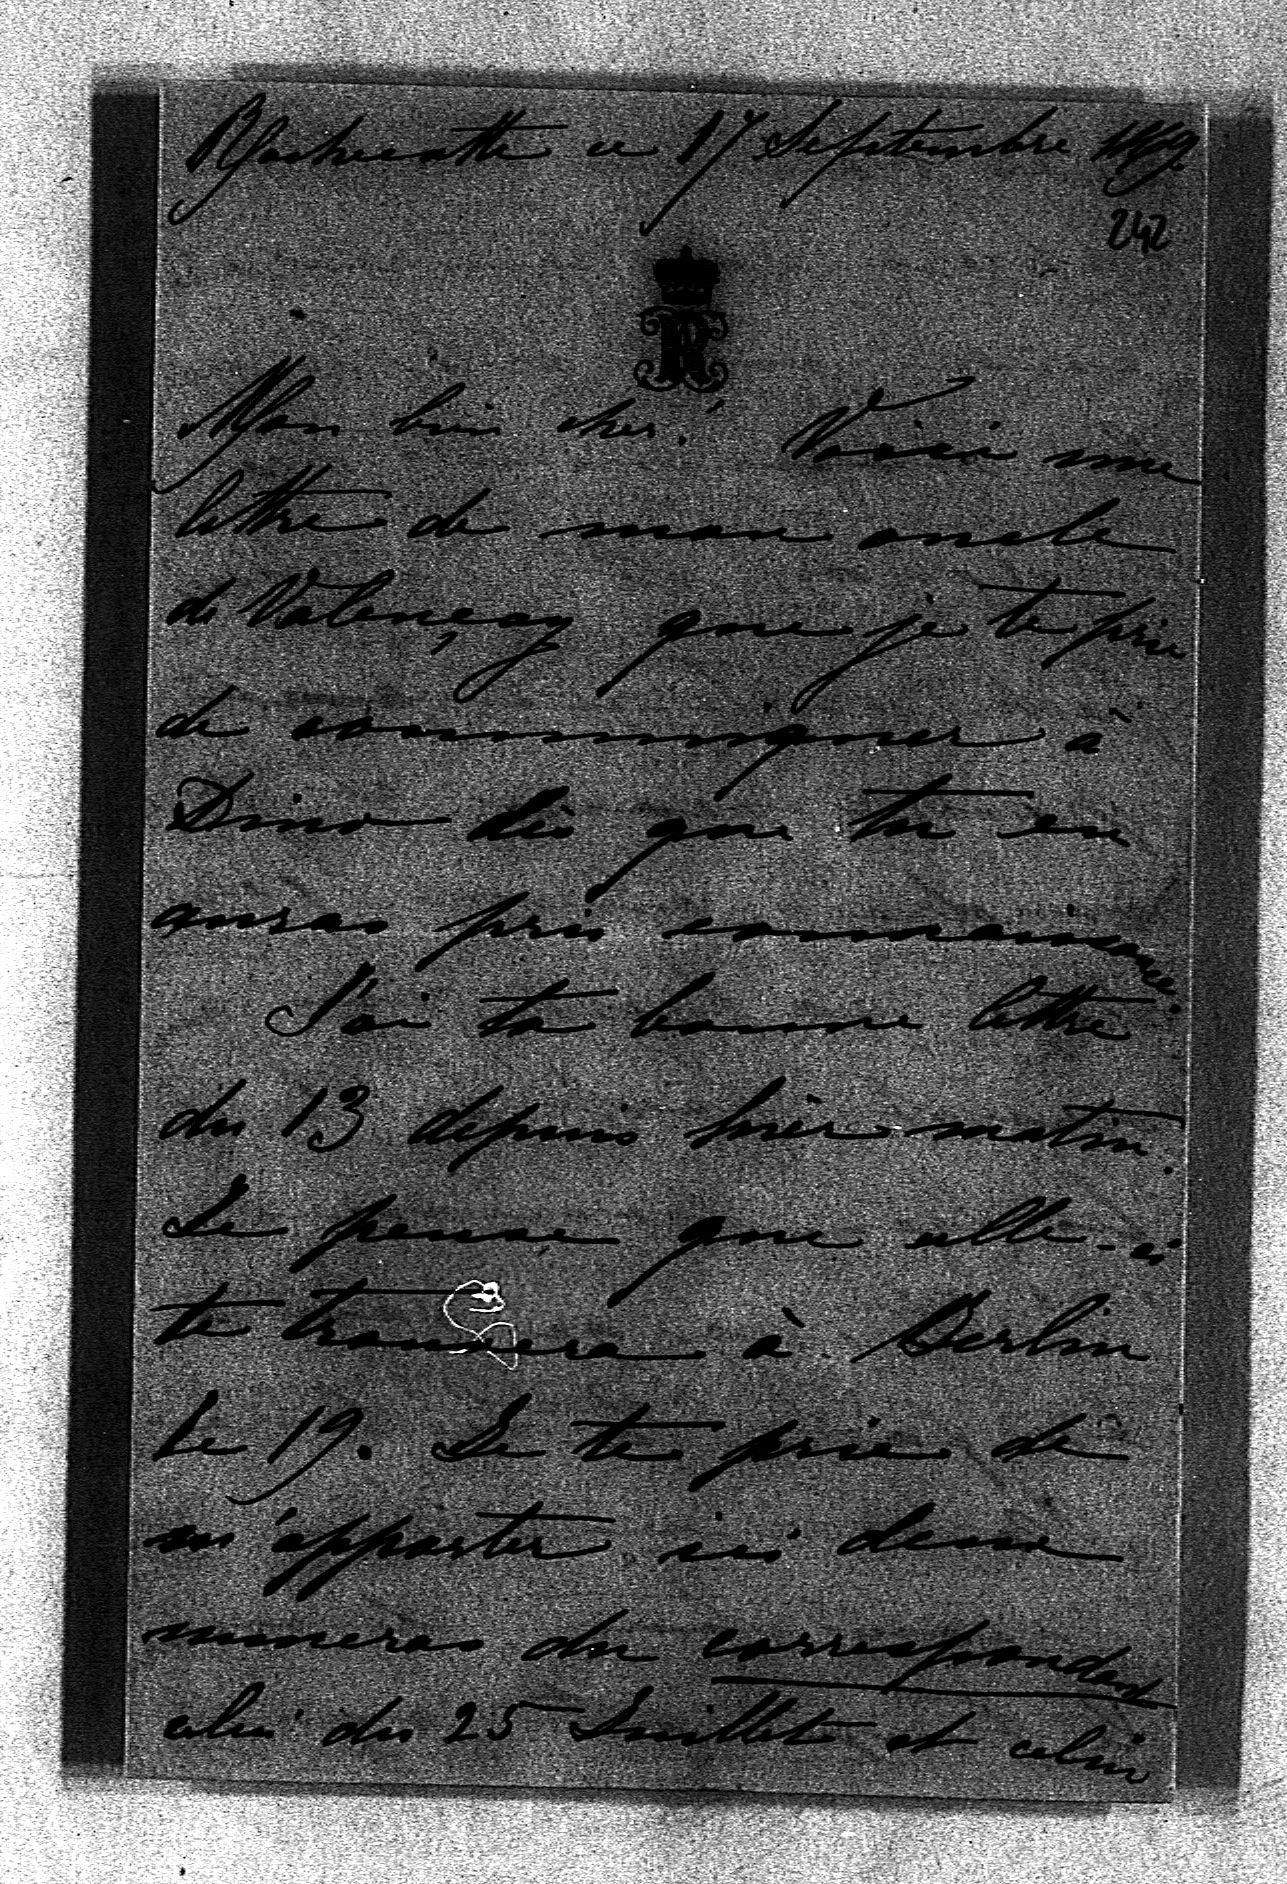 ce 17 Septembre 1869
242
R
Mon bien cher! Voici une
lettre de mon oncle
de Valençay que je te prie
de communiquer à
Dino dès que tu en
auras pris connaissance.
J'ai ta bonne lettre
du 13 depuis hier matin.
Je pense que celle-ci
te trouvera à Berlin
le 19. Je te prie de
m'apporter ici deux
numeros du correspondant
celui du 25 Juillet et celui